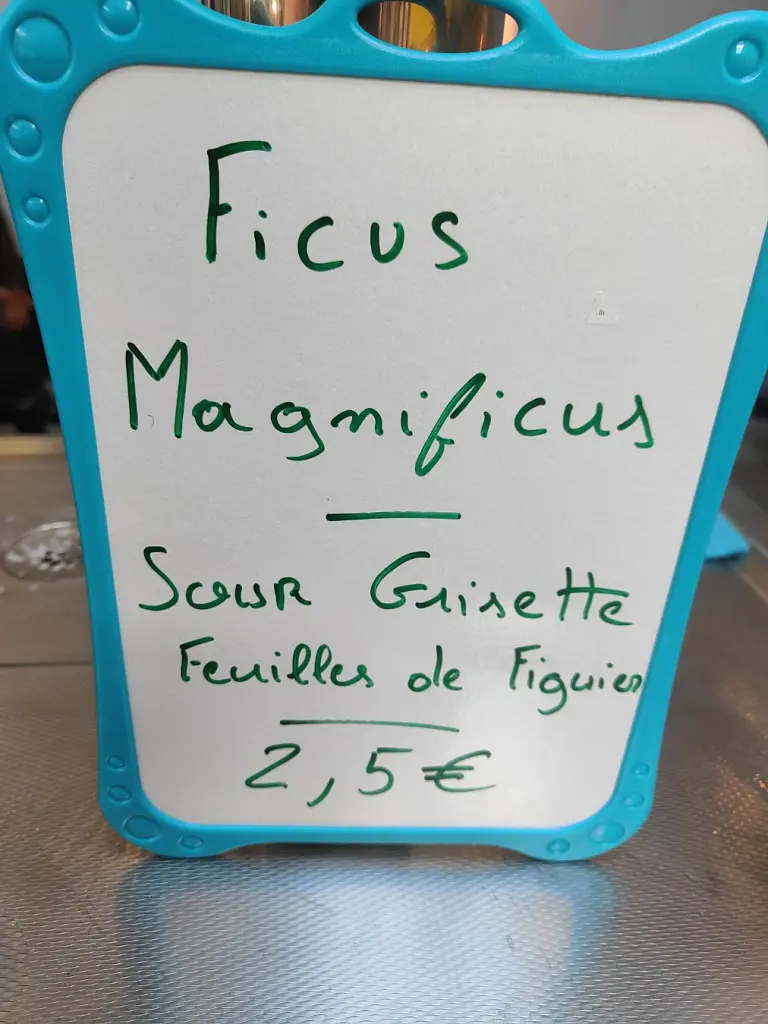 Ficus
Magnificus
Sour Grisette
Feuilles de Figuier
2,5€